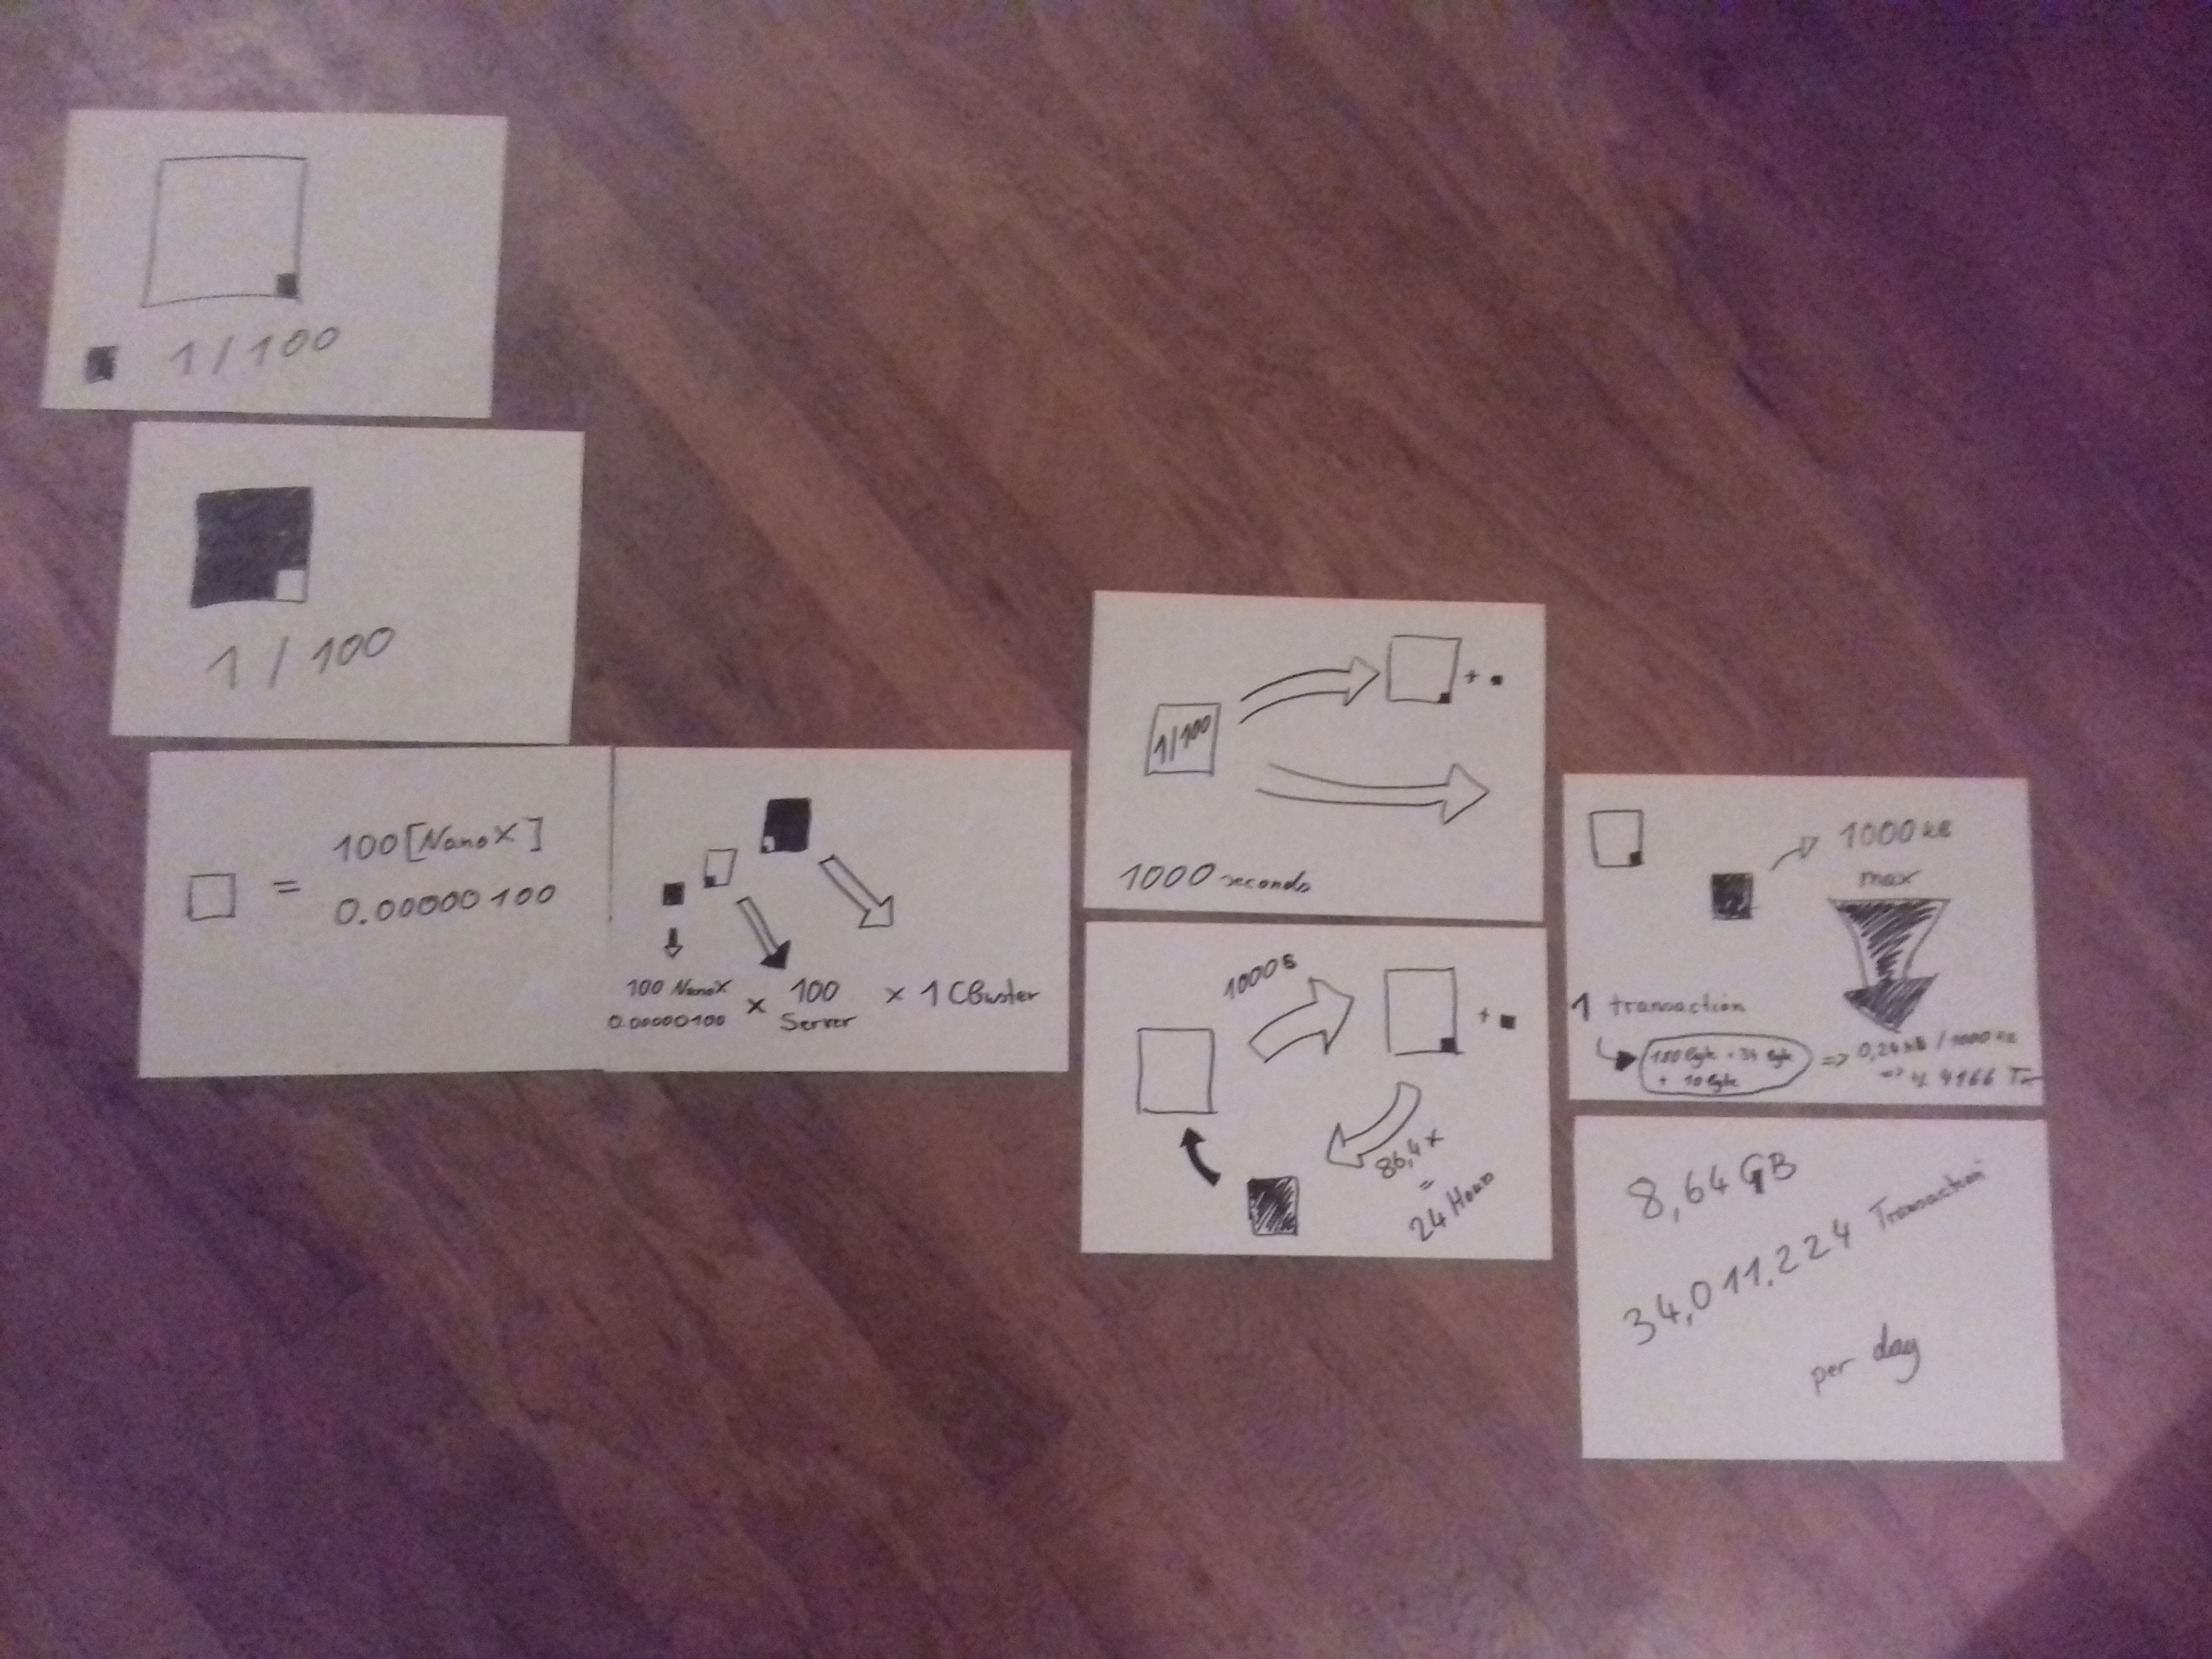 1/100
1/100
100[NanoX]
=
0.00000100
100 NanoX
0.00000100
x
100
Server
x 1 CBuster
1/100
+
1000 seconds
1000s
+
86,4x
=
24 Hours
1000 kB
max
1 transaction
+ 10 Byte
=> 0,24 kB / 1000 kB
4166
8,64 GB
34,011.224 Transaction
per day